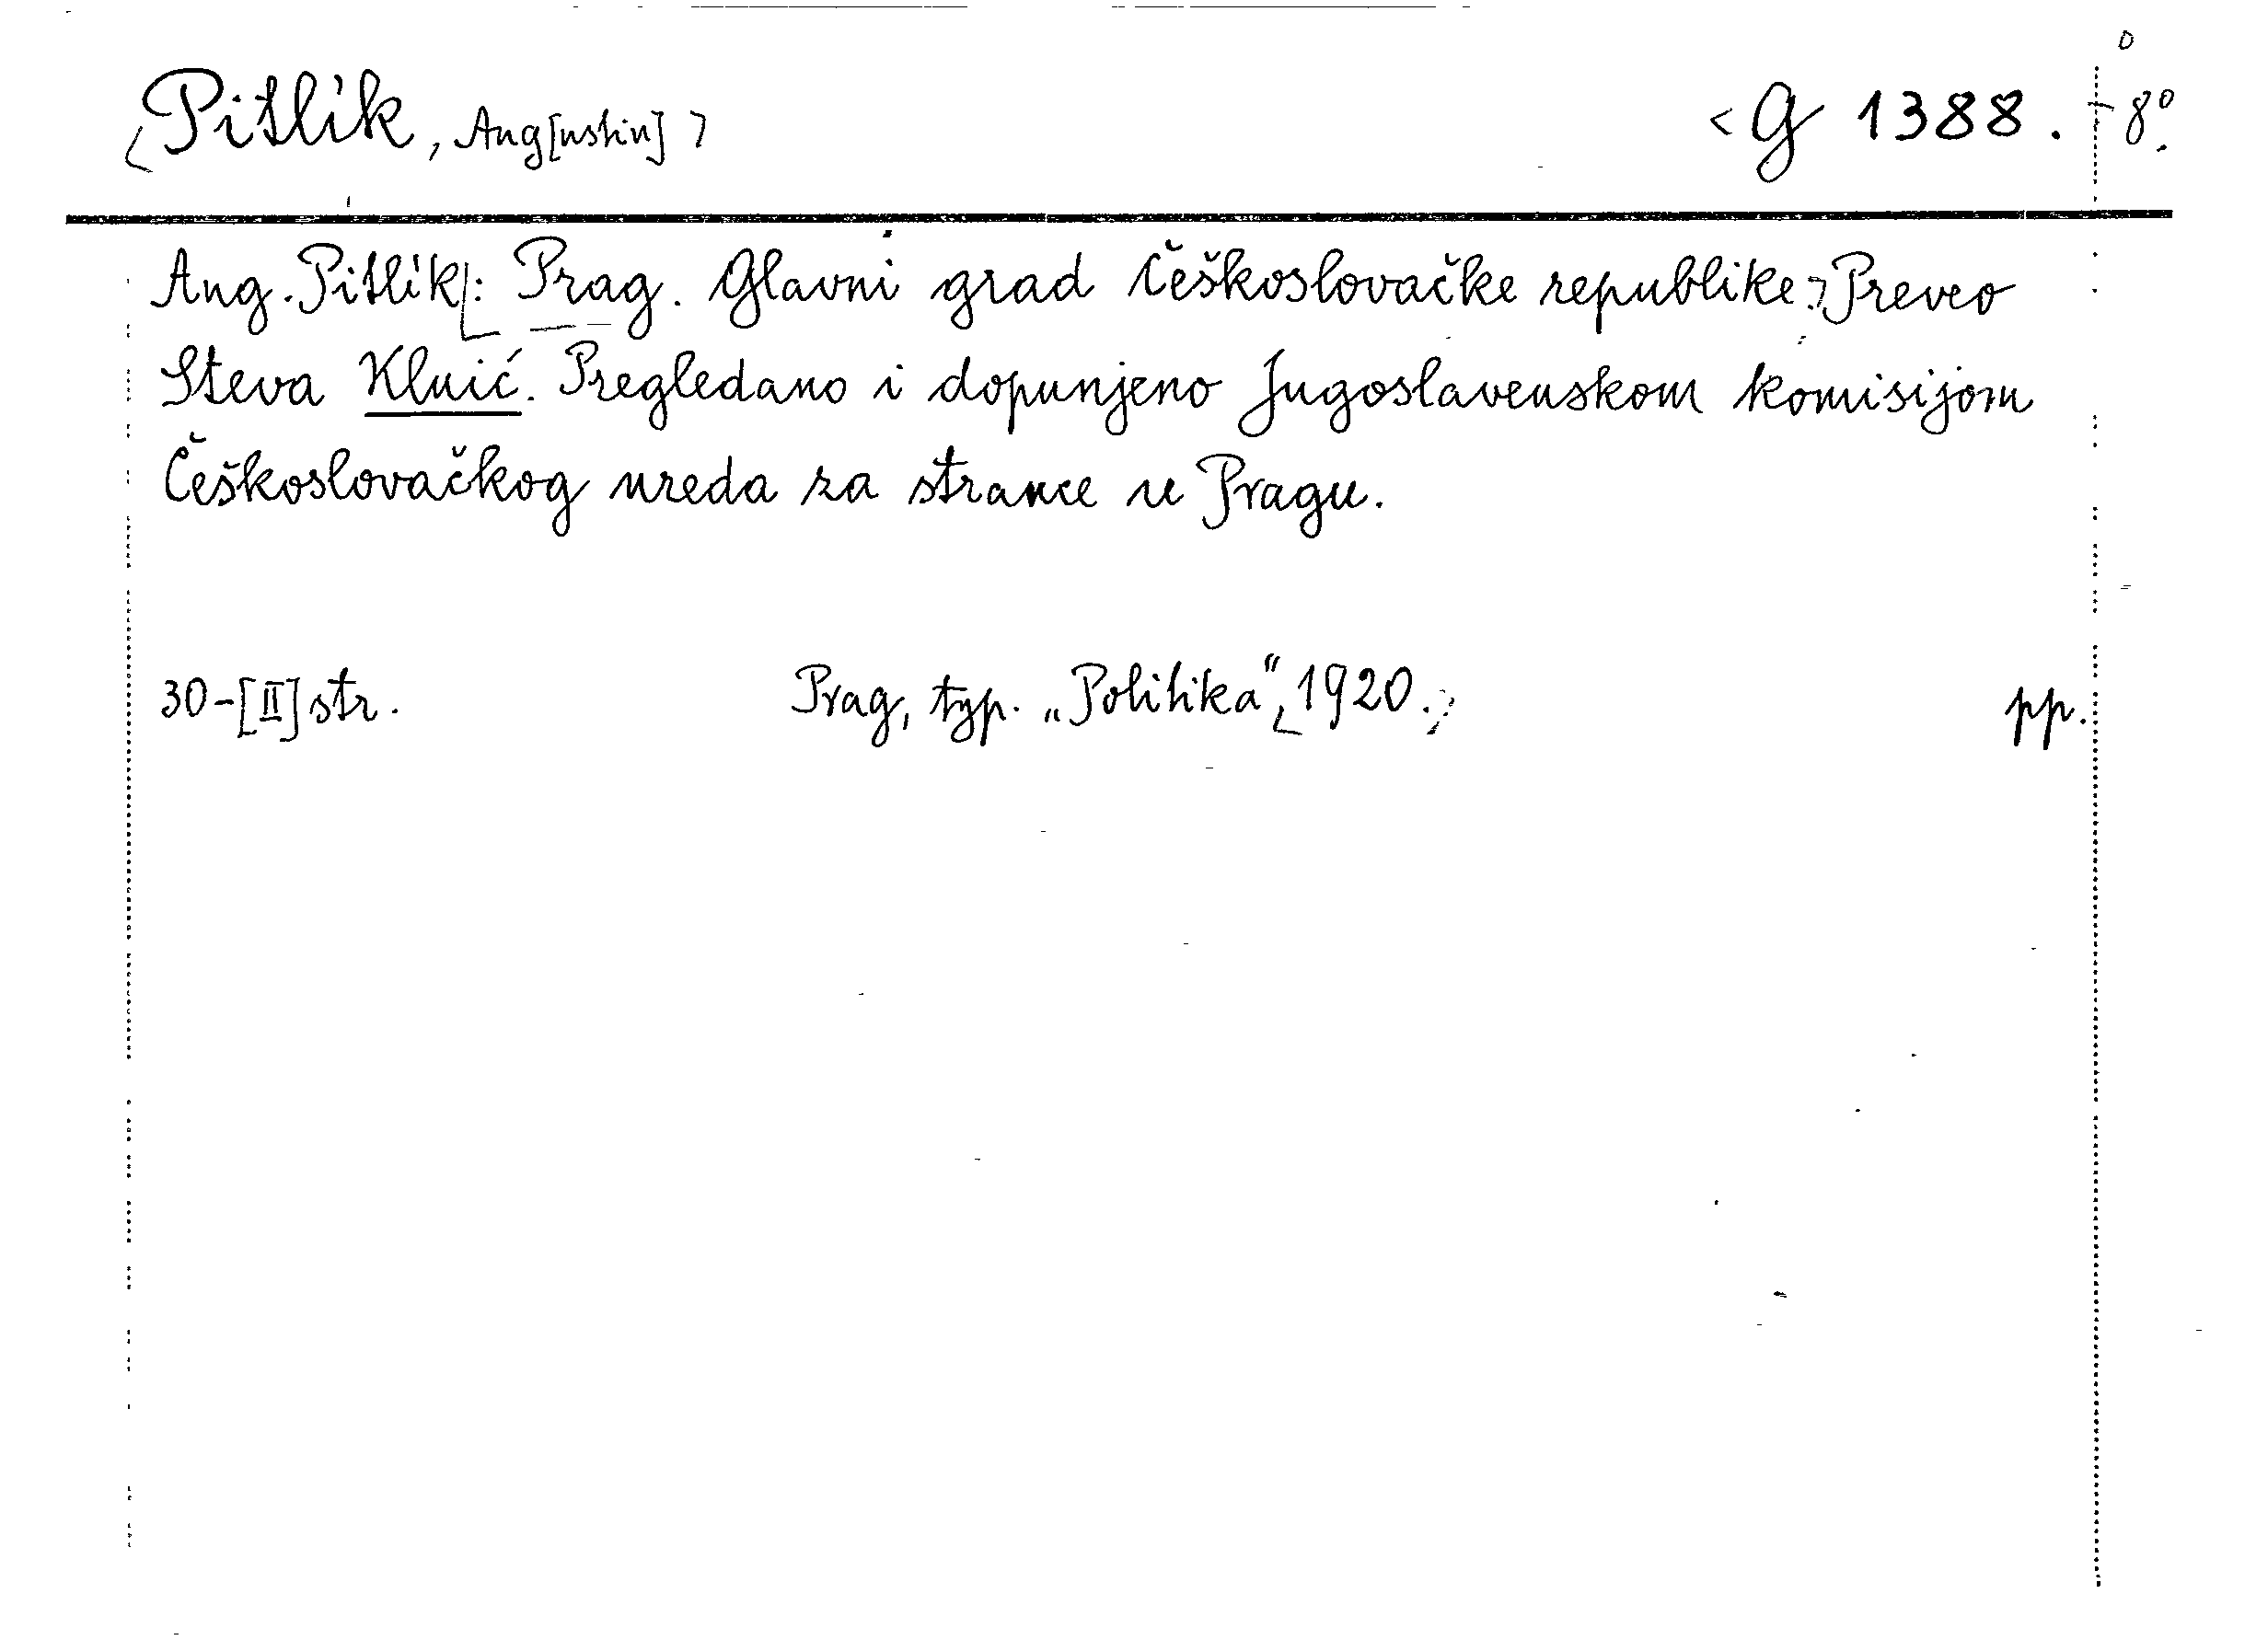 Pitlik, Aug[ustin] G 1388. 8º.
Aug. Pitlik: Prag. Glavni grad Češkoslovačke republike. Preveo
Steva Kluić. Pregledano i dopunjeno Jugoslavenskom komisijom
Češkoslovačkog ureda za strance u Pragu.
30-[II] str. Prag, typ. „Politika“, 1920. pp.